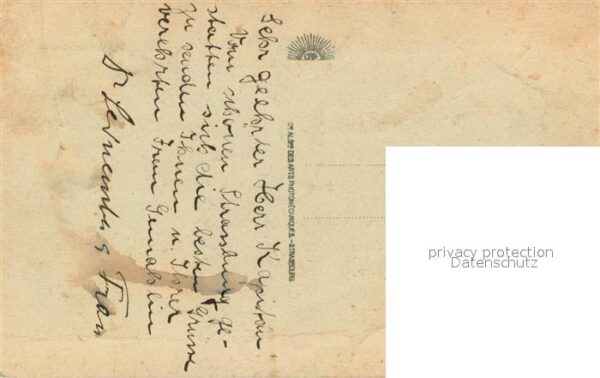 Sehr geehrter Herr Kapitän.
Vom schönen Strassburg ge-
statten sich die besten Grüsse
zu senden Ihnen u. Ihrer
verehrten Frau Gemahlin
Dr & Frau
Cie ALSNE DES ARTS PHOTOMÉCANIQUES — STRASBOURG
privacy protection
Datenschutz